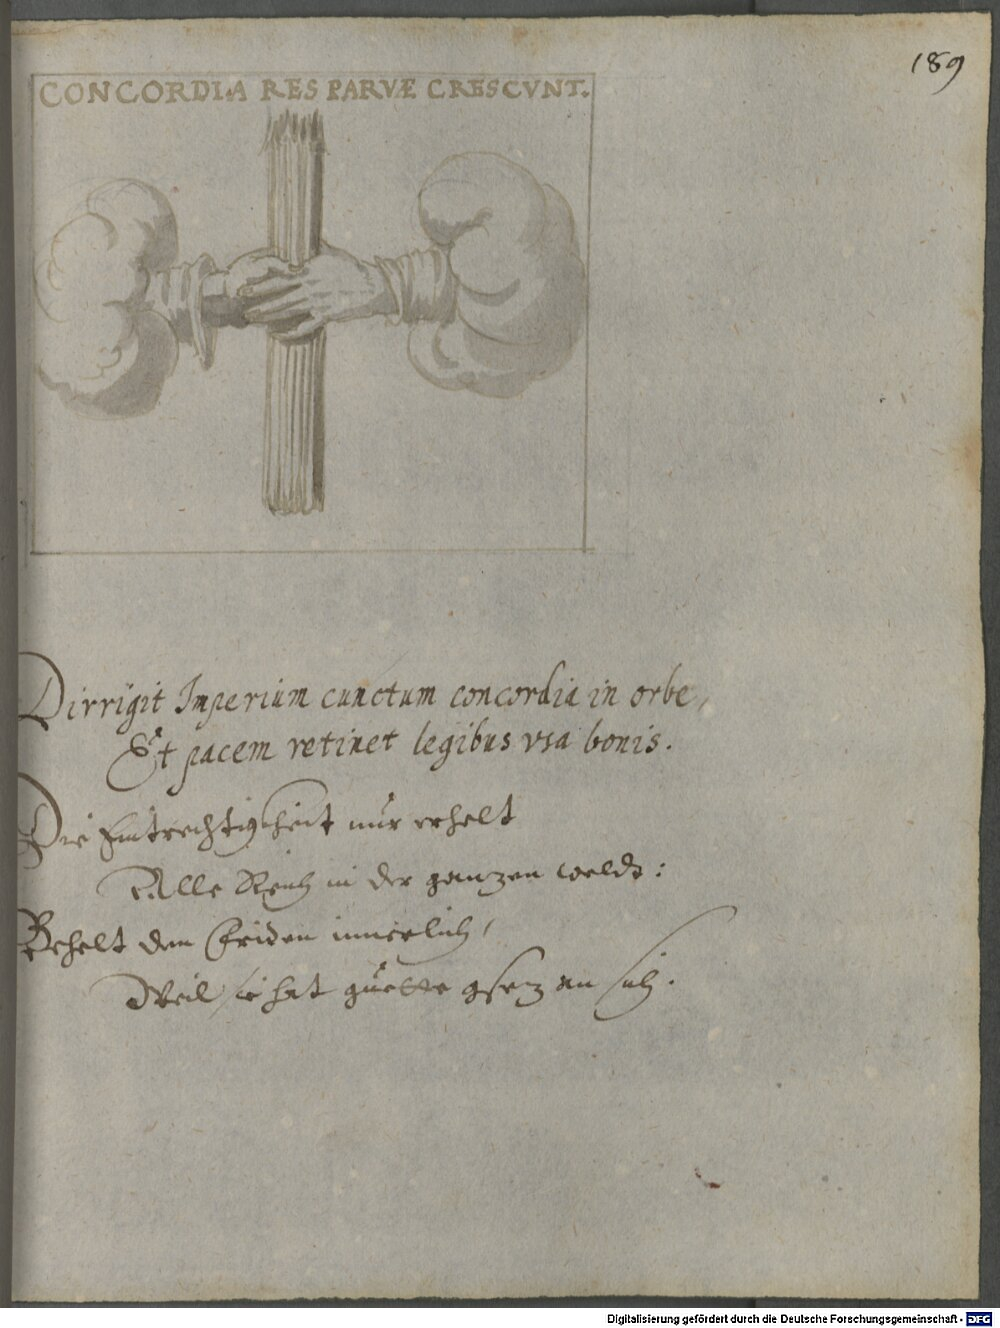 189
CONCORDIA RES PARVÆ CRESCVNT.
Dirrigit Imperium cunctum concordia in orbe,
Et pacem retinet legibus vsa bonis.
Die Eintrechtigkheit nur erhelt
Alle Reich in der ganzen weldt:
Behelt den Friden innerlich,
Weil sie hat guette gsez an sich.
Digitalisierung gefördert durch die Deutsche Forschungsgemeinschaft - DFG